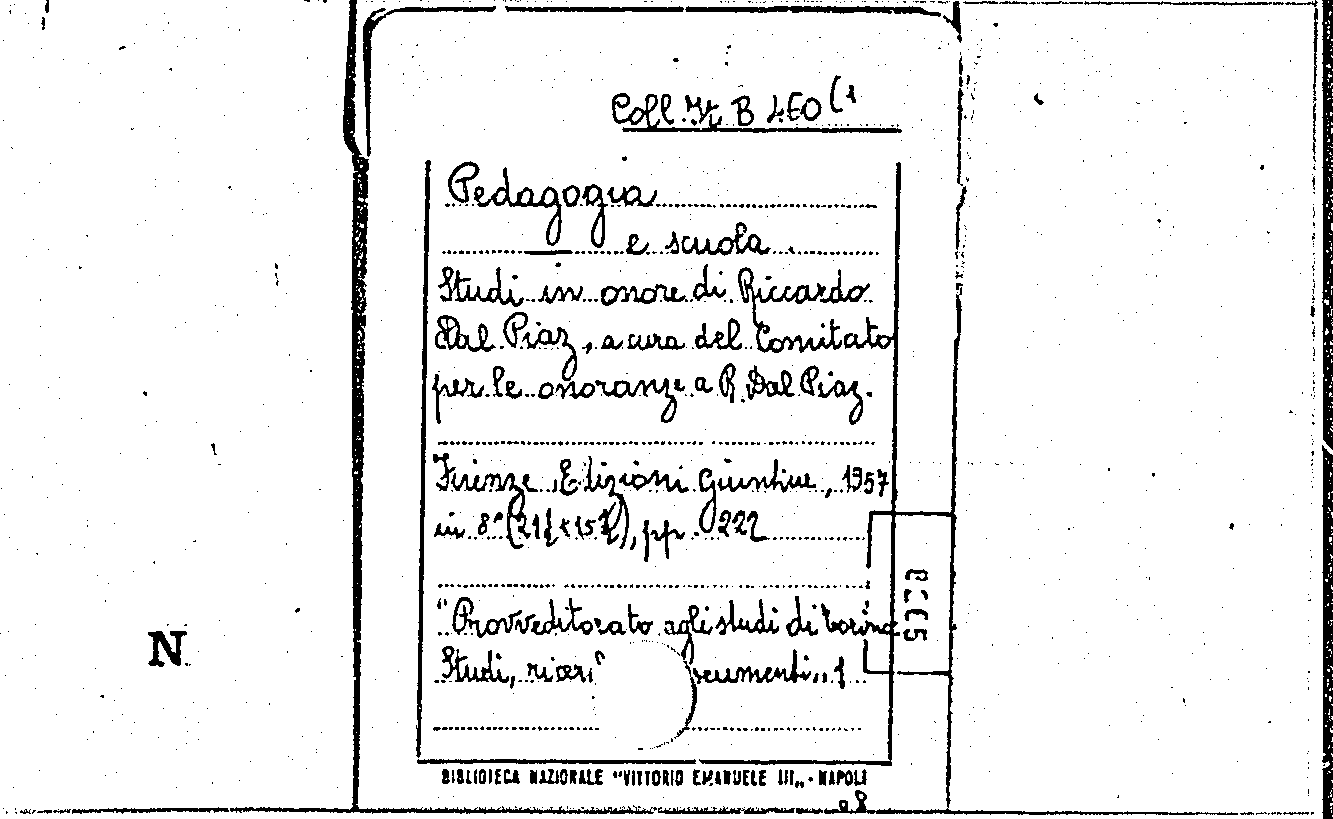 Coll. It. B 460 (1
Pedagogia
e scuola.
Studi in onore di Riccardo
Dal Piaz, a cura del Comitato
per le onoranze a R. Dal Piaz.
Firenze, Edizioni Giuntine, 1957
in 8° pp. 222
"Provveditorato agli studi di Torino
Studi, ricer cumenti,, 1
N
BIBLIOTECA NAZIONALE "VITTORIO EMANUELE III„ - NAPOLI